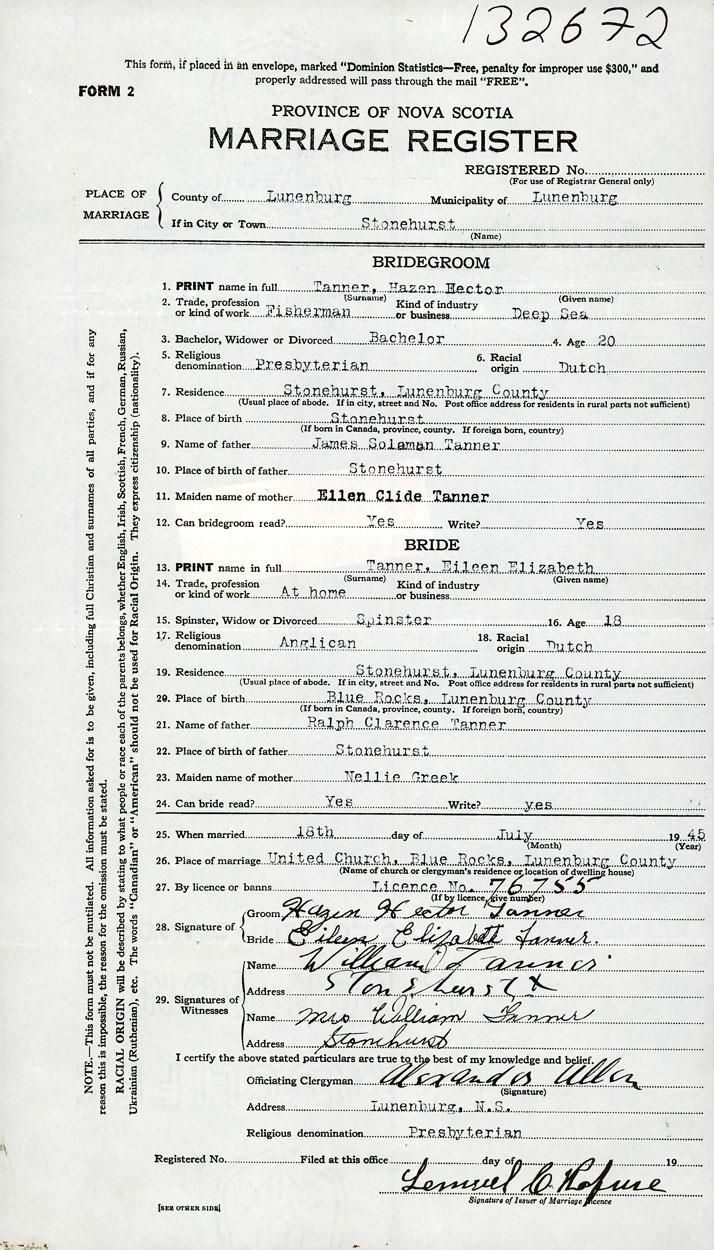 132672
This form, if placed in an envelope, marked "Dominion Statistics—Free, penalty for improper use $300," and
properly addressed will pass through the mail "FREE".
FORM 2
PROVINCE OF NOVA SCOTIA
MARRIAGE REGISTER
REGISTERED No.
(For use of Registrar General only)
PLACE OF MARRIAGE
County of Lunenburg Municipality of Lunenburg
If in City or Town Stonehurst
(Name)
BRIDEGROOM
1. PRINT name in full Tanner, Hazen Hector
(Surname) (Given name)
2. Trade, profession or kind of work Fisherman Kind of industry or business Deep Sea
3. Bachelor, Widower or Divorced Bachelor 4. Age 20
5. Religious denomination Presbyterian 6. Racial origin Dutch
7. Residence Stonehurst, Lunenburg County
(Usual place of abode. If in city, street and No. Post office address for residents in rural parts not sufficient)
8. Place of birth Stonehurst
(If born in Canada, province, county. If foreign born, country)
9. Name of father James Solaman Tanner
10. Place of birth of father Stonehurst
11. Maiden name of mother Ellen Clide Tanner
12. Can bridegroom read? Yes Write? Yes
BRIDE
13. PRINT name in full Tanner, Eileen Elizabeth
(Surname) (Given name)
14. Trade, profession or kind of work At home Kind of industry or business
15. Spinster, Widow or Divorced Spinster 16. Age 18
17. Religious denomination Anglican 18. Racial origin Dutch
19. Residence Stonehurst, Lunenburg County
(Usual place of abode. If in city, street and No. Post office address for residents in rural parts not sufficient)
20. Place of birth Blue Rocks, Lunenburg County
(If born in Canada, province, county. If foreign born, country)
21. Name of father Ralph Clarence Tanner
22. Place of birth of father Stonehurst
23. Maiden name of mother Nellie Greek
24. Can bride read? Yes Write? yes
25. When married 18th day of July 1945
(Month) (Year)
26. Place of marriage United Church, Blue Rocks, Lunenburg County
(Name of church or clergyman's residence or location of dwelling house)
27. By licence or banns Licence No. 76755
(If by licence, give number)
28. Signature of
Groom Hazen Hector Tanner
Bride Eileen Elizabeth Tanner.
29. Signatures of Witnesses
Name William Tanner
Address Stonehurst
Name Mrs William Tanner
Address Stonehurst
I certify the above stated particulars are true to the best of my knowledge and belief.
Officiating Clergyman Alexander Allen
(Signature)
Address Lunenburg, N.S.
Religious denomination Presbyterian
Registered No. Filed at this office day of 19
Lemuel C.
Signature of Issuer of Marriage Licence
[SEE OTHER SIDE]
NOTE.—This form must not be mutilated. All information asked for is to be given, including full Christian and surnames of all parties, and if for any
reason this is impossible, the reason for the omission must be stated.
RACIAL ORIGIN will be described by stating to what people or race each of the parents belongs, whether English, Irish, Scottish, French, German, Russian,
Ukrainian (Ruthenian), etc. The words "Canadian" or "American" should not be used for Racial Origin. They express citizenship (nationality).